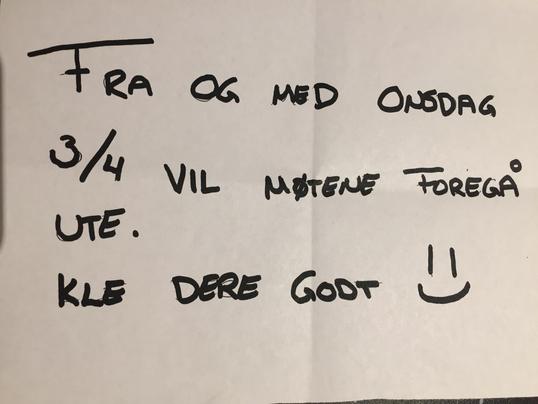 FRA OG MED ONSDAG
3/4 VIL MØTENE FOREGÅ
UTE.
KLE DERE GODT